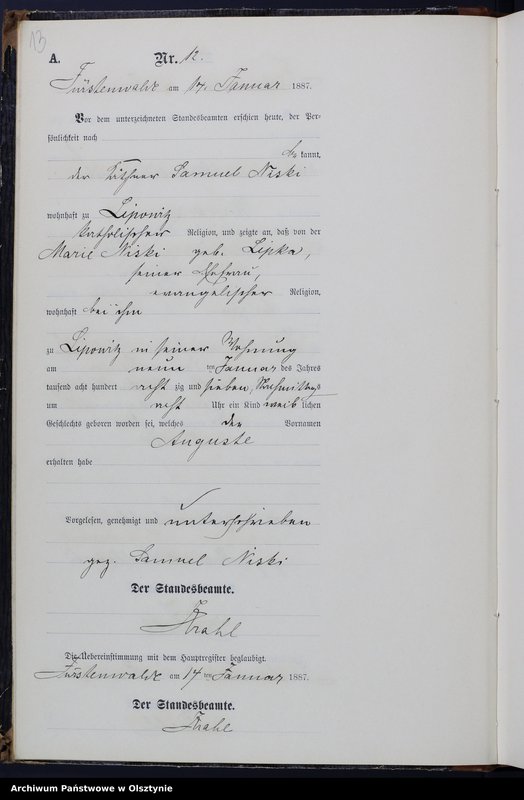 13
A.
Nr. 12.
Fürstenwalde am 14. Januar 1887.
Vor dem unterzeichneten Standesbeamten erschien heute, der Per-
sönlichkeit nach
be kannt,
der Käthner Samuel Niski
wohnhaft zu Lipowitz
katholischer Religion, und zeigte an, daß von der
Marie Niski geb. Lipka,
seiner Ehefrau,
evangelischer Religion,
wohnhaft bei ihm
zu Lipowitz in seiner Wohnung
am neun ten Januar des Jahres
tausend acht hundert acht zig und sieben, Nachmittags
um acht Uhr ein Kind weib lichen
Geschlechts geboren worden sei, welches den Vornamen
Auguste
erhalten habe
Vorgelesen, genehmigt und unterschrieben
gez. Samuel Niski
Der Standesbeamte.
Krahl
Die Uebereinstimmung mit dem Hauptregister beglaubigt.
Fürstenwalde am 14 ten Januar 1887.
Der Standesbeamte.
Krahl
Archiwum Państwowe w Olsztynie